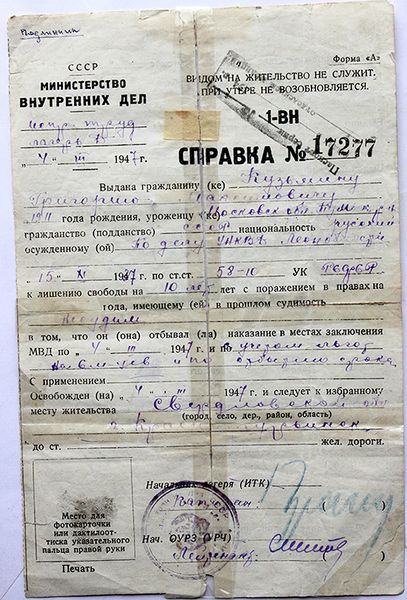 Подлинник
СССР
МИНИСТЕРСТВО
ВНУТРЕННИХ ДЕЛ
Форма «А»
ВИДОМ НА ЖИТЕЛЬСТВО НЕ СЛУЖИТ.
ПРИ УТЕРЕ НЕ ВОЗОБНОВЛЯЕТСЯ.
испр. труд
лагерь
"4" III 1947 г.
1-ВН
СПРАВКА № 17277
Выдана гражданину (ке) Кузьмину
Григорию
1911 года рождения, уроженцу
гражданство (подданство) СССР национальность русский
осужденному (ой) По делу УНКВД
"15" XI 1937 по ст.ст. 58-10 УК РСФСР
к лишению свободы на 10 лет с поражением в правах на
года, имеющему (ей) в прошлом судимость
Несудим
в том, что он (она) отбывал (ла) наказание в местах заключения
МВД по "4" III 1947 г. и по
и по отбытию срока
С применением
Освобожден (на) "4" III 1947 г. и следует к избранному
месту жительства Свердловской обл
(город, село, дер., район, область)
до ст. жел. дороги.
Место для
фотокарточки
или дактилоот-
тиска указательного
пальца правой руки
Печать
Начальник лагеря (ИТК)
Капитан
Нач. ОУРЗ (УРЧ)
Лейтенант